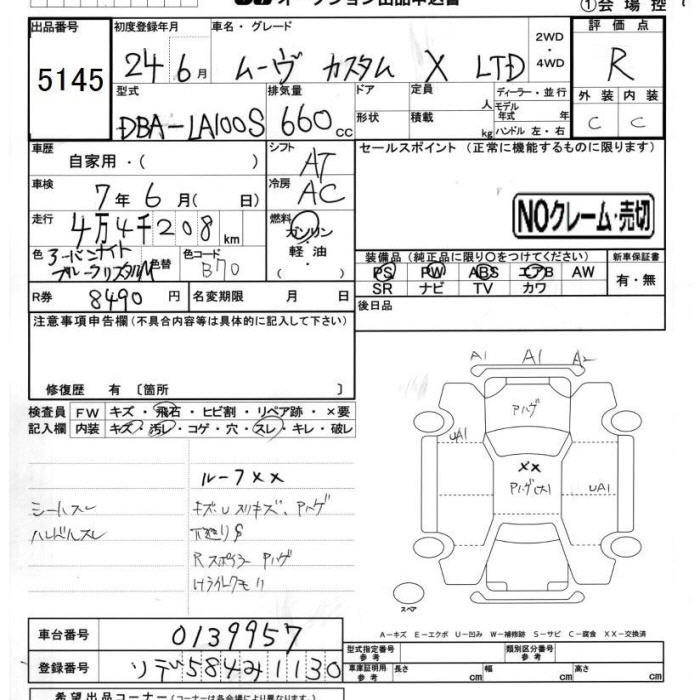 ①会場控
出品番号 初度登録年月 車名・グレード 評価点
5145
24 6月 ムーヴ カスタム X LTD 2WD・4WD R
型式 排気量 ドア 定員 ディーラー・並行 外装 内装
DBA-LA100S 660cc 形状 積載 人 kg モデル年式 年 ハンドル 左・右 C C
車歴 自家用・( ) シフト AT セールスポイント (正常に機能するものに限ります)
車検 7年 6月( 日) 冷房 AC
NOクレーム・売切
走行 4万4千208km 燃料 ガソリン・軽油・( )
色 アーバンナイトブルークリスタルM 色替 色コード B70
装備品 (純正品に限り○をつけてください) 新車保証書
PS PW ABS エアB AW 有・無
SR ナビ TV カワ
R券 8490円 名変期限 月 日 後日品
注意事項申告欄(不具合内容等は具体的に記入して下さい)
修復歴 有 〔箇所 〕
検査員記入欄 FW キズ・飛石・ヒビ割・リペア跡・×要
内装 キズ・汚レ・コゲ・穴・スレ・キレ・破レ
A1 A1 A2
アハゲ
UA1 ××
アハゲ(大) UA1
ルーフ××
シートスレ
ハンドルスレ
Rスポイラー アハゲ
スペア
A-キズ E-エクボ U-凹み W-補修跡 S-サビ C-腐食 XX-交換済
車台番号 0139957
登録番号 ソデ584み1130
型式指定番号 参考 類別区分番号 参考
車庫証明用 参考 長さ 幅 高さ
希望出品コーナー(コーナーは各会場により異なります)